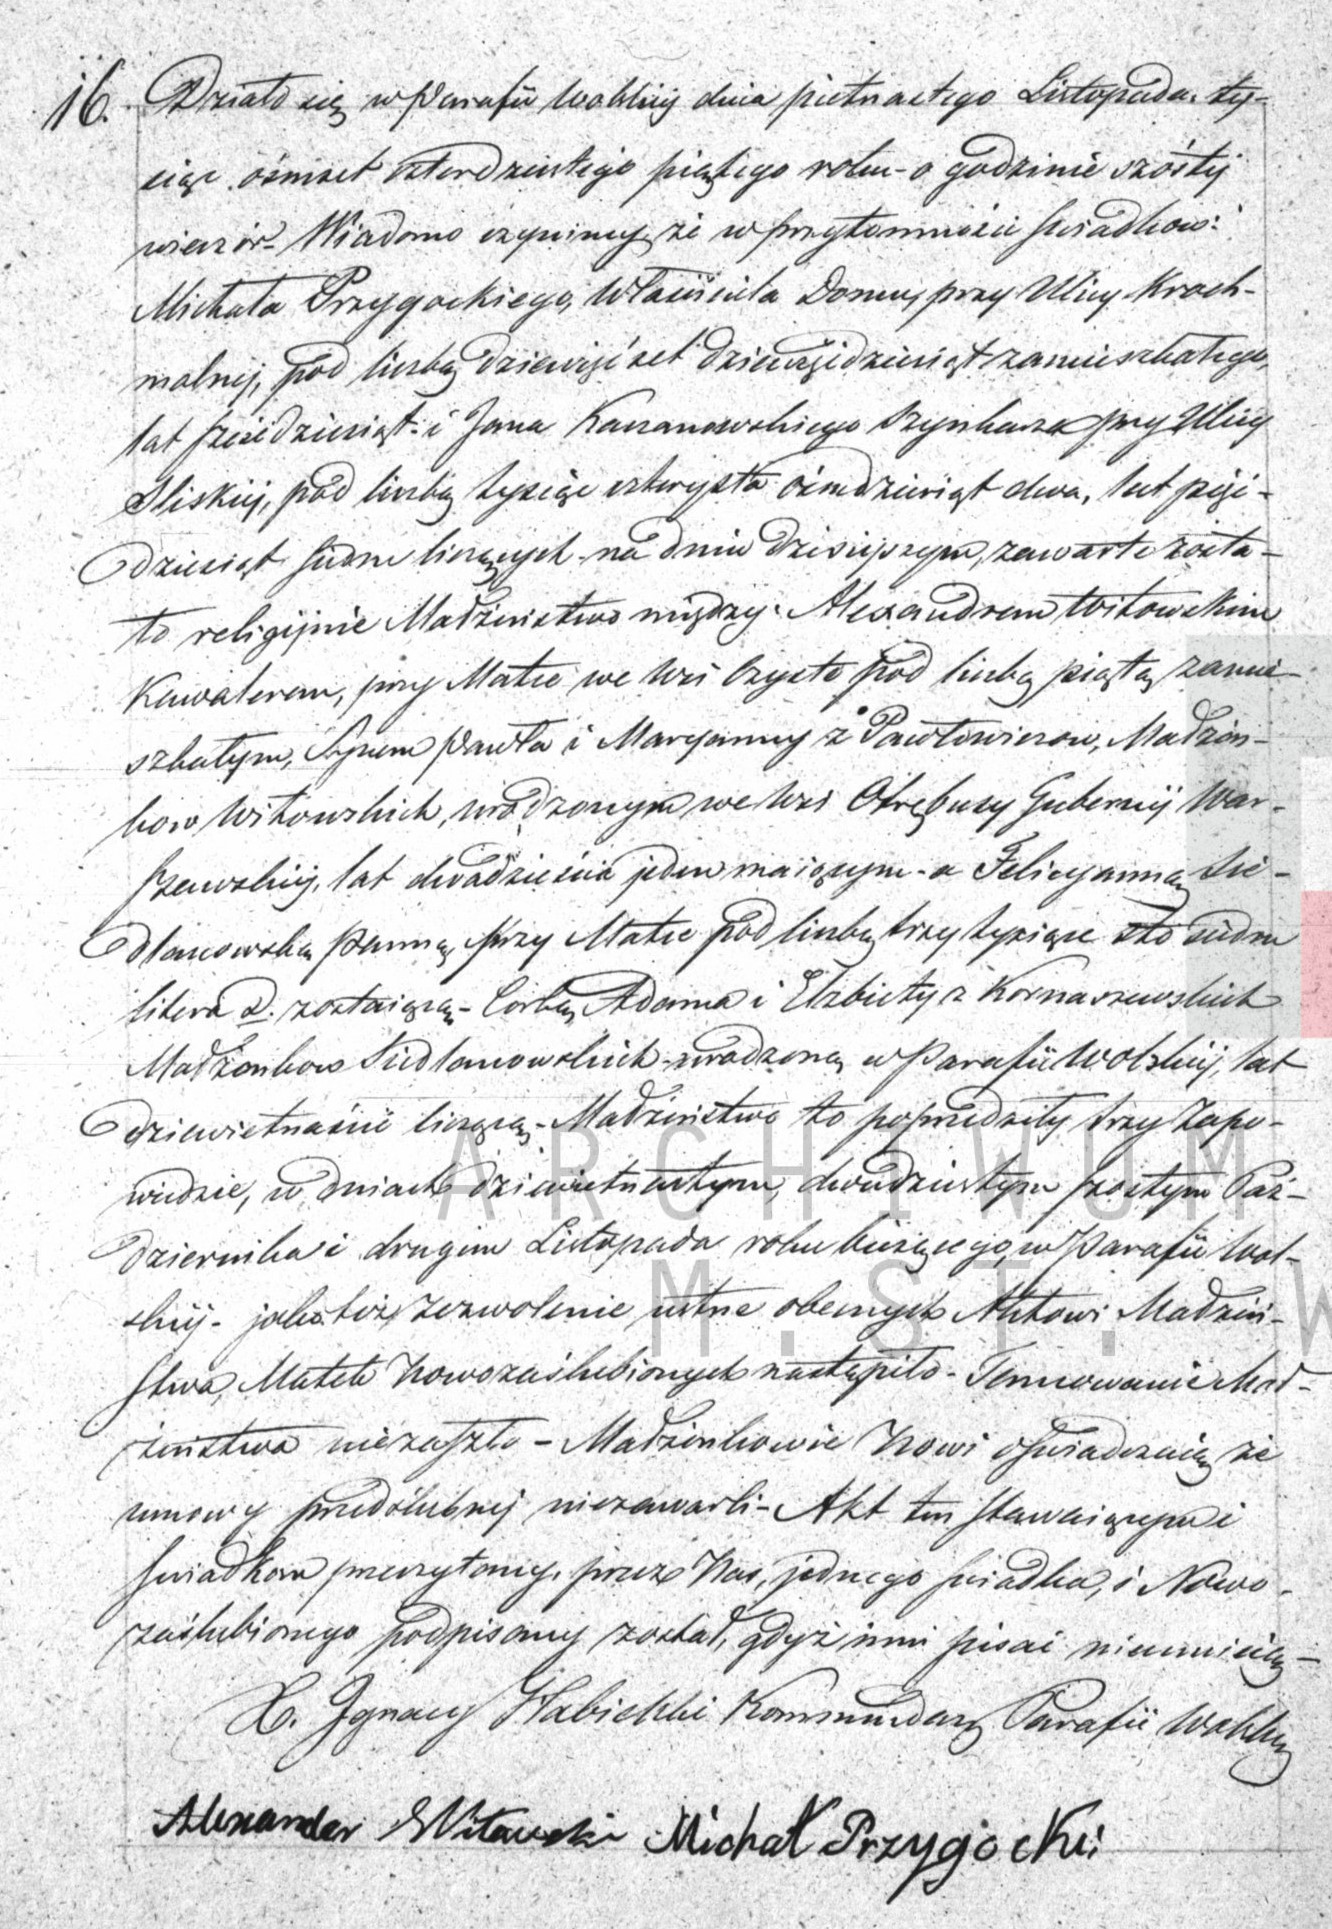 16. Działo się w Parafii Wolskiéj dnia piętnastego Listopada ty-
siąc ośmset czterdziestego piątego roku - o godzinie szóstéj
wieczór - Wiadomo czyniemy, że w przytomności świadków:
Michała Przygockiego, Właściciela Domu, przy Ulicy Kroch-
malnéj, pod liczbą dziewięćset dziewięćdziesiąt zamieszkałego,
lat sześćdziesiąt i Jana Kaczanowskiego Szynkarza przy Ulicy
Sliskiéj, pod liczbą tysiąc czterysta ośmdziesiąt dwa, lat pięć-
dziesiąt siedm liczących - na dniu dzisiejszym, zawarte zosta-
ło religijnie Małżeństwo między: Alexandrem Witowskim
Kawalerem, przy Matce we Wsi Czyste pod liczbą piątą zamie-
szkałym, Synem Pawła i Maryanny z Pawłowiczow, Małżon-
kow Witowskich, urodzonym we Wsi Otrębusy Gubernij War-
szawskiéj, lat dwadzieścia jeden maiącym - a Felicyanną Sie-
dlanowską Panną, przy Matce pod liczbą trzy tysiące sto siedm
litera D. zostaiącą - Corką Adama i Elżbiety z Kornaszewskich
Małżonkow Siedlanowskich - urodzoną w Parafii Wolskiéj, lat
dziewietnaście liczącą - Małżeństwo to poprzedziły trzy zapo-
wiedzie, w dniach dziewietnastym, dwudziestym szostym Paź-
dziernika i drugim Listopada roku bieżącego, w Parafii Wol-
skiéj - jako też zezwolenie ustne obecnych Aktowi Małżeń-
stwa, Matek Nowozaślubionych nastąpiło - Tamowanie Mał-
żeństwa niezaszło - Małżonkowie Nowi oświadczaią że
umowy przedślubnéj niezawarli - Akt ten stawaiącym i
świadkom przeczytany, przez Nas, jednego świadka, i Nowo-
zaślubionego podpisany został, gdyż inni pisać nieumieią -
X. Ignacy Kommendarz Parafii Wolskiéj
Alexander Witowski Michał Przygocki